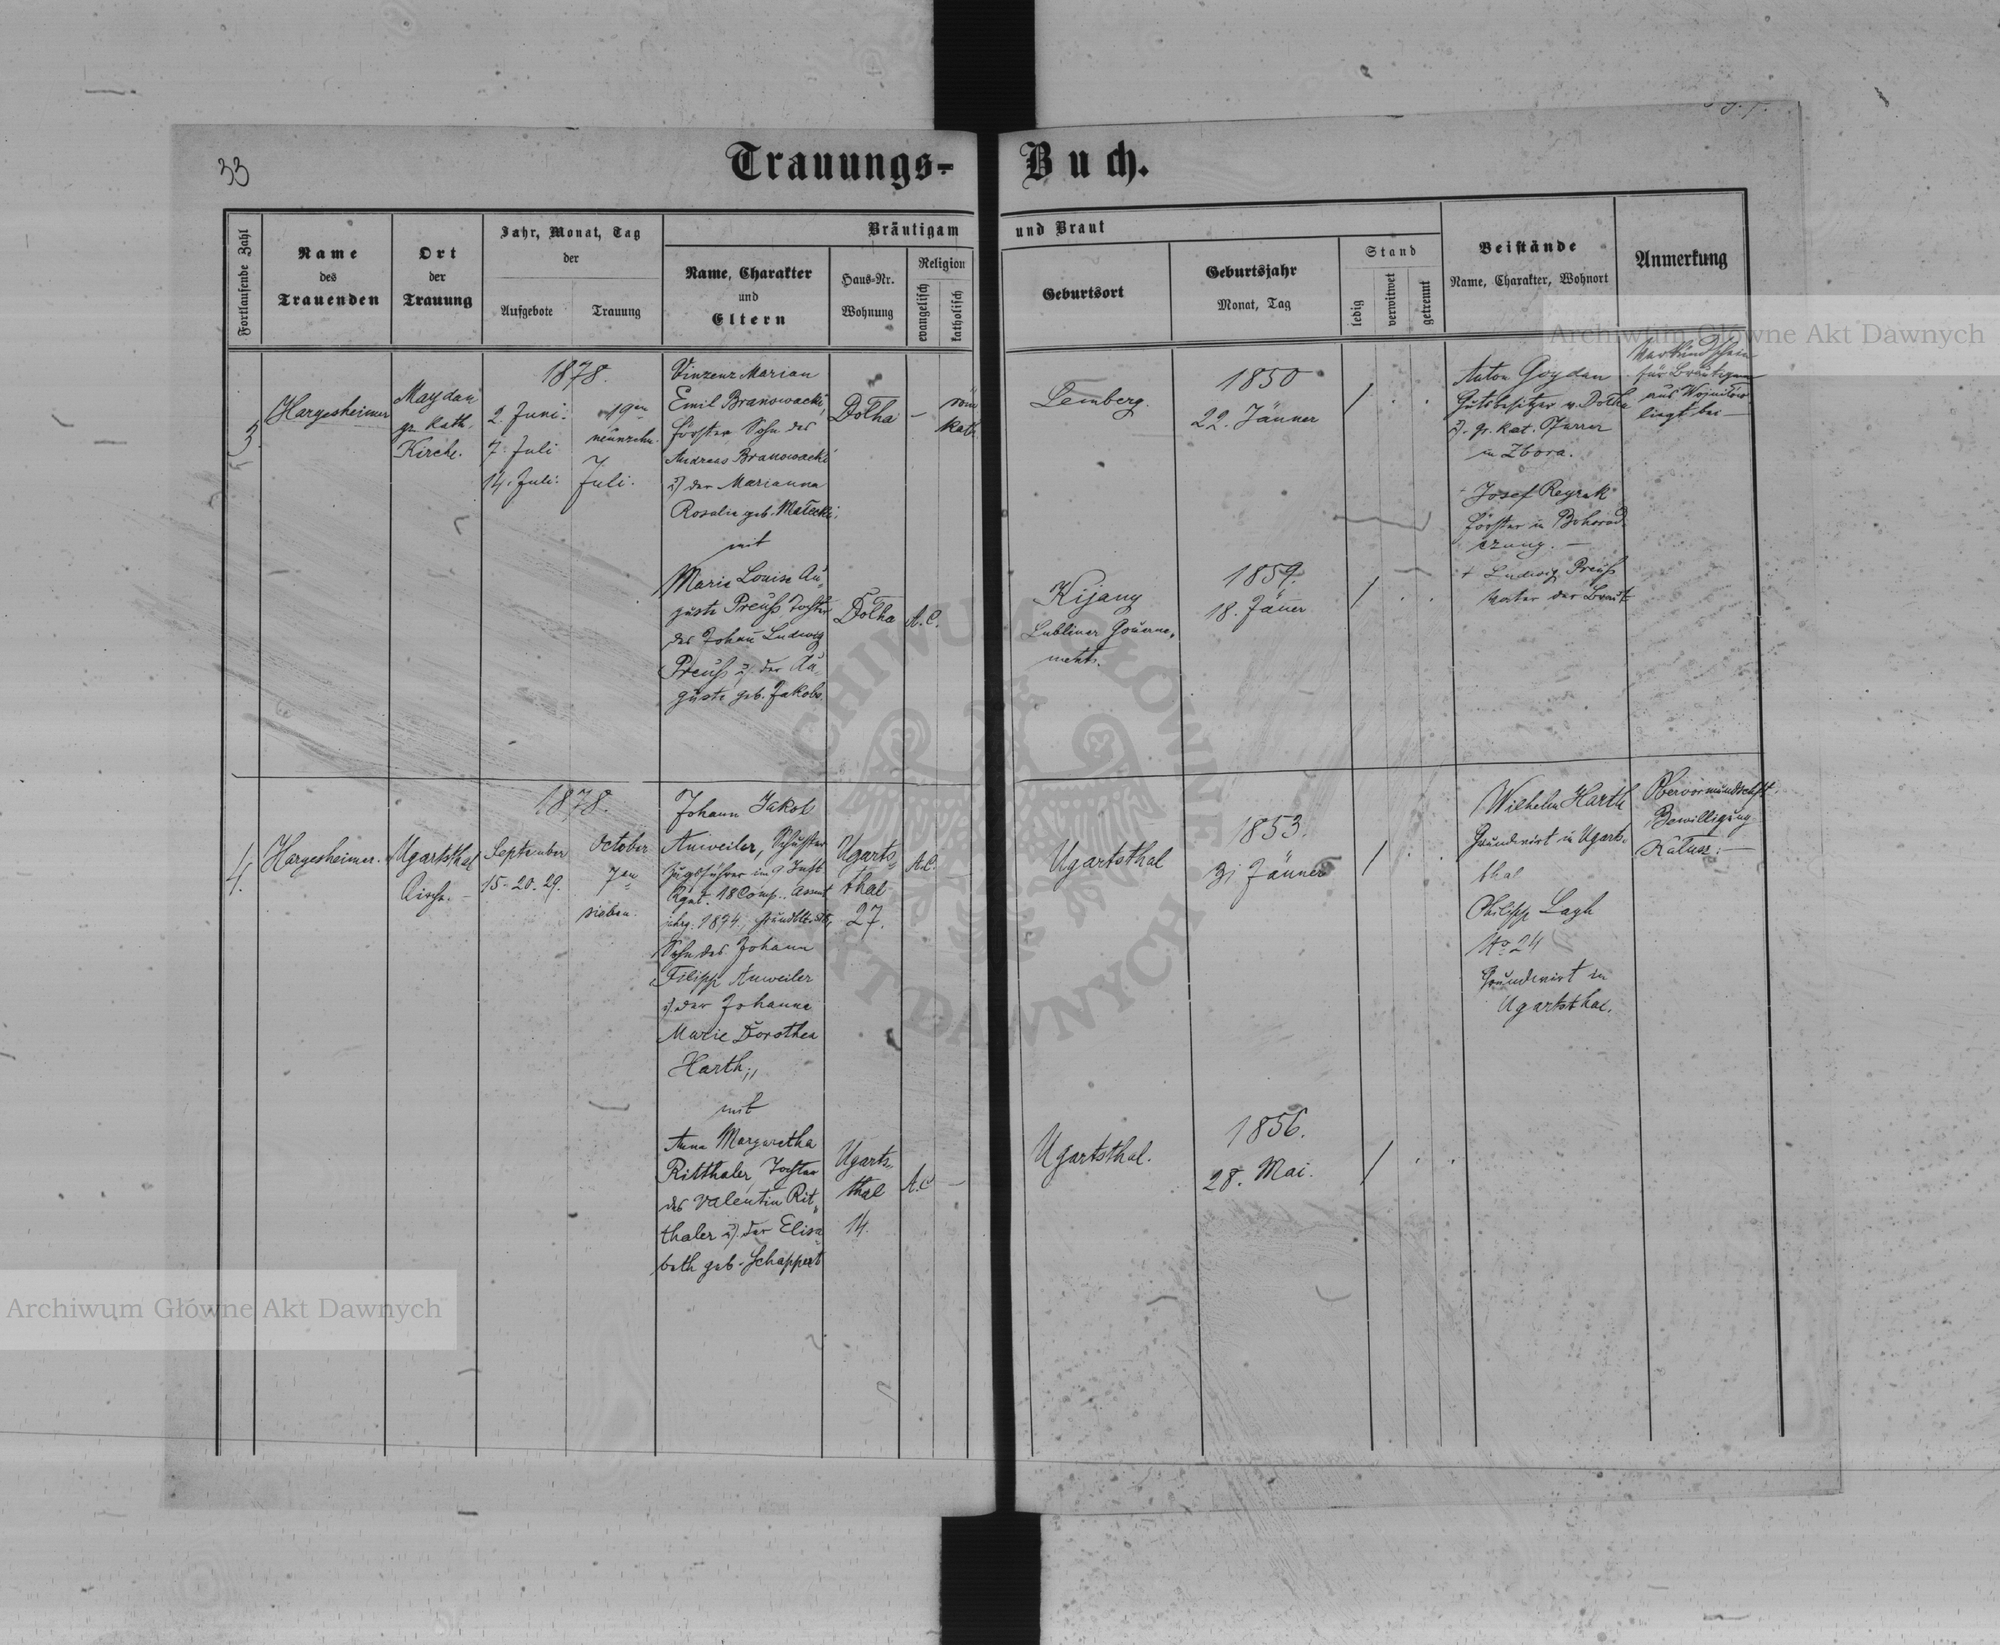 33
Trauungs-Buch.
Fortlaufende Zahl
Name
des
Trauenden
Ort
der
Trauung
Jahr, Monat, Tag
der
Aufgebote
Trauung
Bräutigam und Braut
Name, Charakter
und
Eltern
Haus-Nr.
Wohnung
Religion
evangelisch
katholisch
Geburtsort
Geburtsjahr
Monat, Tag
Stand
ledig
verwitwet
getrennt
Beistände
Name, Charakter, Wohnort
Anmerkung
3.
Hargesheimer
Maydan
gr. kath.
Kirche.
1878.
2. Juni.
7. Juli
14. Juli.
19en
neunzehn.
Juli.
Vinzenz Marian
Emil Branowacki,
Förster Sohn des
Andreas Branowacki
u. der Marianna
Rosalie geb. Małecki.
mit
Marie Louise Au-
guste Preuß Tochter
des Johann Ludwig
Preuß u. der Au-
guste geb. Jakobs.
Dołha
–
röm.
kath.
Dołha
A.C.
Lemberg.
1850
22. Jänner
Kijany
Lubliner Gouverne-
ments.
1859.
18. Jänner
Anton Goydan
Gutsbesitzer v. Dołha
u. gr. kat. Pfarrer
in Zbora.
Josef Reyrek
Förster in Bohorod-
czany. –
+ Ludwig Preuß
Vater der Braut
für Bräutigam
aus
liegt bei –
4.
Hargesheimer.
Ugartsthal
Kirche. –
1878.
September
15. 20. 29.
October
7en
sieben.
Johann Jakob
Anweiler, Schuster
Zugsführer im 9. Inft.
Rgmt. 18 Comp.. Assent
jahrg. 1874.
Sohn des Johann
Filipp Anweiler
u. der Johanna
Marie Dorothea
Harth,
mit
Anna Margaretha
Ritthaler, Tochter
des Valentin Rit-
thaler u. der Elisa-
beth geb. Schappert
Ugarts-
thal
27.
A.C.
–
Ugarts-
thal
14.
A.C.
–
Ugartsthal
1853.
31 Jänner
Ugartsthal.
1856.
28. Mai.
Wilhelm Harth
Grundwirt in Ugarts-
thal
Philipp
No 24
Grundwirt in
Ugartsthal.
Obervormundschaft.
Bewilligung
Kałusz. –
Archiwum Główne Akt Dawnych
Archiwum Główne Akt Dawnych
ARCHIWUM GŁÓWNE AKT DAWNYCH